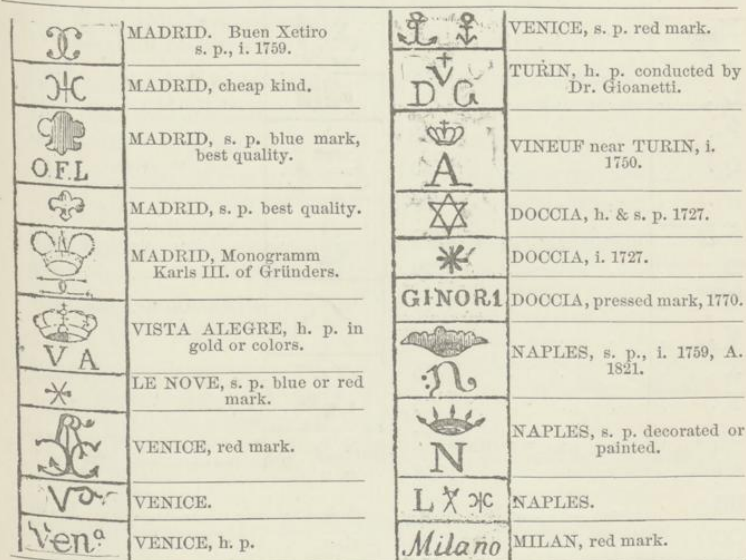 MADRID. Buen Xetiro
s. p., i. 1759.
MADRID, cheap kind.
O.F.L
MADRID, s. p. blue mark,
best quality.
MADRID, s. p. best quality.
MADRID, Monogramm
Karls III. of Gründers.
V A
VISTA ALEGRE, h. p. in
gold or colors.
LE NOVE, s. p. blue or red
mark.
VENICE, red mark.
Va
VENICE.
Ven.a
VENICE, h. p.
VENICE, s. p. red mark.
V
D G
TURIN, h. p. conducted by
Dr. Gioanetti.
A
VINEUF near TURIN, i.
1750.
DOCCIA, h. & s. p. 1727.
DOCCIA, i. 1727.
GINORI
DOCCIA, pressed mark, 1770.
:n
NAPLES, s. p., i. 1759, A.
1821.
N
NAPLES, s. p. decorated or
painted.
L
NAPLES.
Milano
MILAN, red mark.